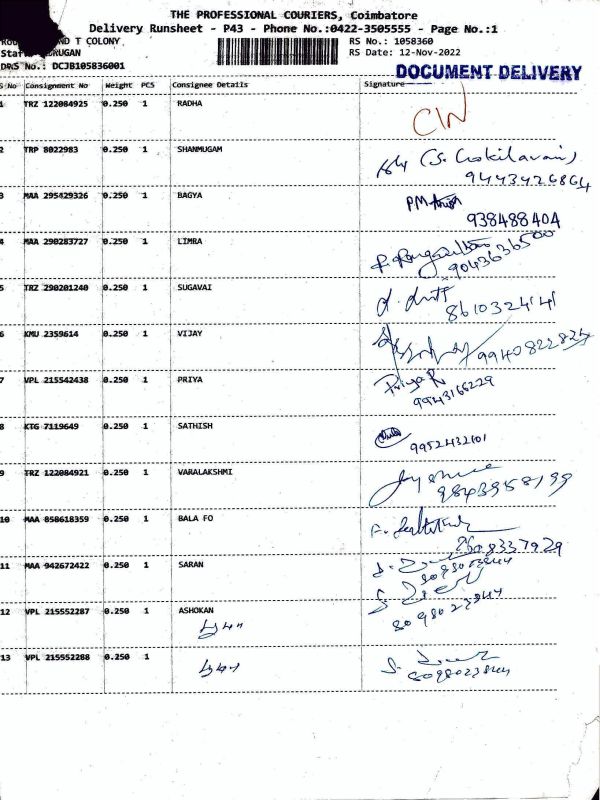 THE PROFESSIONAL COURIERS, Coimbatore
Delivery Runsheet - P43 - Phone No.:0422-3505555 - Page No.:1
T COLONY RS No.: 1058360
RS Date: 12-Nov-2022
DRS No.: DCJB105836001
DOCUMENT DELIVERY
S No Consignment No Weight PCS Consignee Details Signature
1 TRZ 122084925 0.250 1 RADHA CIN
2 TRP 8022983 0.250 1 SHANMUGAM
9443426864
3 MAA 295429326 0.250 1 BAGYA PM
938488404
4 MAA 290283727 0.250 1 LIMRA
9043636500
5 TRZ 290201240 0.250 1 SUGAVAI
8610324141
6 KMU 2359614 0.250 1 VIJAY
9940822824
7 VPL 215542438 0.250 1 PRIYA Priya R
9943166229
8 KTG 7119649 0.250 1 SATHISH
9952432101
9 TRZ 122084921 0.250 1 VARALAKSHMI
9843958199
10 MAA 858618359 0.250 1 BALA FO
11 MAA 942672422 0.250 1 SARAN
12 VPL 215552287 0.250 1 ASHOKAN
13 VPL 215552288 0.250 1